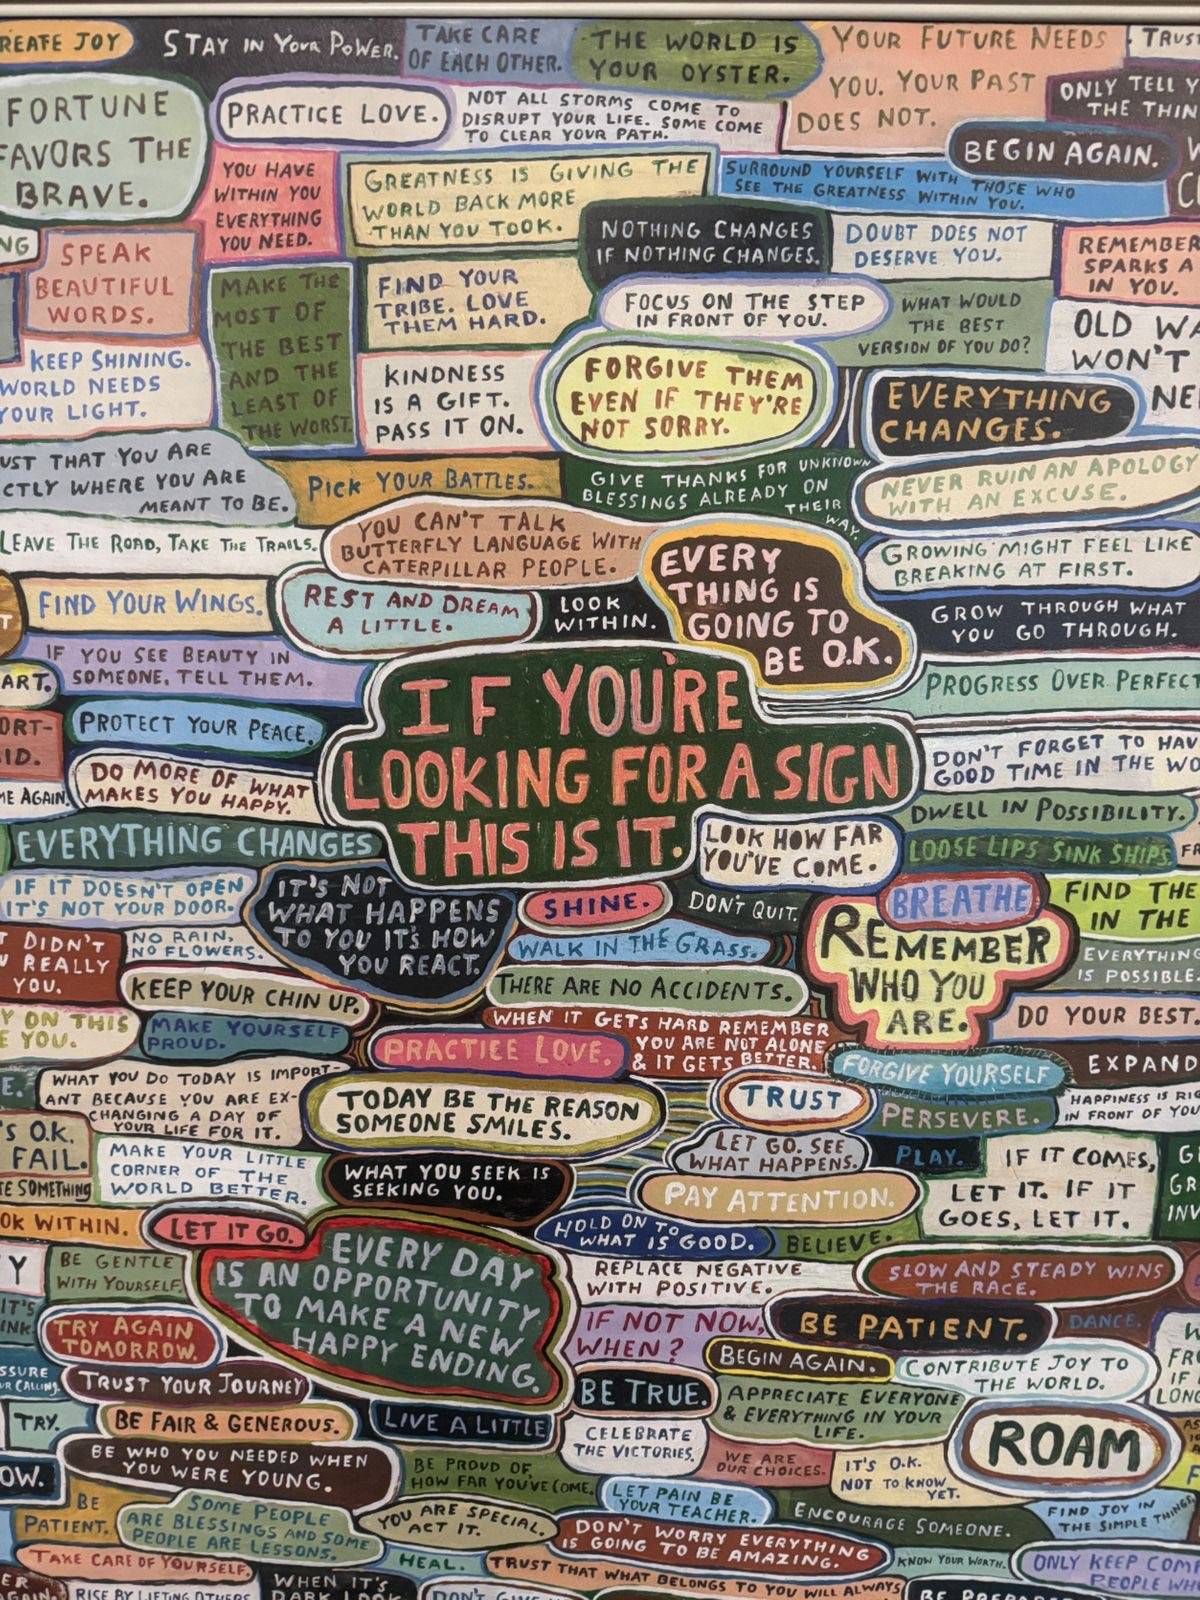 REATE JOY
STAY IN YOUR POWER.
TAKE CARE
OF EACH OTHER.
THE WORLD IS
YOUR OYSTER.
YOUR FUTURE NEEDS
YOU. YOUR PAST
DOES NOT.
TRUST
FORTUNE
FAVORS THE
BRAVE.
PRACTICE LOVE.
NOT ALL STORMS COME TO
DISRUPT YOUR LIFE. SOME COME
TO CLEAR YOUR PATH.
ONLY TELL Y
THE THIN
BEGIN AGAIN.
YOU HAVE
WITHIN YOU
EVERYTHING
YOU NEED.
GREATNESS IS GIVING THE
WORLD BACK MORE
THAN YOU TOOK.
SURROUND YOURSELF WITH THOSE WHO
SEE THE GREATNESS WITHIN YOU.
NG
SPEAK
BEAUTIFUL
WORDS.
NOTHING CHANGES
IF NOTHING CHANGES.
DOUBT DOES NOT
DESERVE YOU.
REMEMBER
SPARKS A
IN YOU.
MAKE THE
MOST OF
THE BEST
AND THE
LEAST OF
THE WORST.
FIND YOUR
TRIBE. LOVE
THEM HARD.
FOCUS ON THE STEP
IN FRONT OF YOU.
WHAT WOULD
THE BEST
VERSION OF YOU DO?
OLD WA
WON'T
NE
KEEP SHINING.
WORLD NEEDS
YOUR LIGHT.
KINDNESS
IS A GIFT.
PASS IT ON.
FORGIVE THEM
EVEN IF THEY'RE
NOT SORRY.
EVERYTHING
CHANGES.
UST THAT YOU ARE
CTLY WHERE YOU ARE
MEANT TO BE.
PICK YOUR BATTLES.
GIVE THANKS FOR UNKNOWN
BLESSINGS ALREADY ON
THEIR
WAY.
NEVER RUIN AN APOLOGY
WITH AN EXCUSE.
LEAVE THE ROAD, TAKE THE TRAILS.
YOU CAN'T TALK
BUTTERFLY LANGUAGE WITH
CATERPILLAR PEOPLE.
EVERY
THING IS
GOING TO
BE O.K.
GROWING MIGHT FEEL LIKE
BREAKING AT FIRST.
FIND YOUR WINGS.
REST AND DREAM
A LITTLE.
LOOK
WITHIN.
GROW THROUGH WHAT
YOU GO THROUGH.
IF YOU SEE BEAUTY IN
SOMEONE, TELL THEM.
ART.
IF YOU'RE
LOOKING FOR A SIGN
THIS IS IT.
PROGRESS OVER PERFECT
ORT-
ID.
PROTECT YOUR PEACE.
DON'T FORGET TO HAV
GOOD TIME IN THE WO
ME AGAIN.
DO MORE OF WHAT
MAKES YOU HAPPY.
DWELL IN POSSIBILITY.
EVERYTHING CHANGES
LOOK HOW FAR
YOU'VE COME.
LOOSE LIPS SINK SHIPS.
FR
IF IT DOESN'T OPEN
IT'S NOT YOUR DOOR.
IT'S NOT
WHAT HAPPENS
TO YOU IT'S HOW
YOU REACT.
SHINE.
DON'T QUIT.
BREATHE
FIND THE
IN THE
T DIDN'T
U REALLY
YOU.
NO RAIN,
NO FLOWERS.
WALK IN THE GRASS.
REMEMBER
WHO YOU
ARE.
EVERYTHING
IS POSSIBLE.
KEEP YOUR CHIN UP.
THERE ARE NO ACCIDENTS.
DO YOUR BEST.
Y ON THIS
E YOU.
MAKE YOURSELF
PROUD.
PRACTICE LOVE.
WHEN IT GETS HARD REMEMBER
YOU ARE NOT ALONE
& IT GETS BETTER.
FORGIVE YOURSELF
EXPAND
E.
WHAT YOU DO TODAY IS IMPORT-
ANT BECAUSE YOU ARE EX-
CHANGING A DAY OF
YOUR LIFE FOR IT.
TODAY BE THE REASON
SOMEONE SMILES.
TRUST
PERSEVERE.
HAPPINESS IS RIG
IN FRONT OF YOU
'S O.K.
FAIL.
MAKE YOUR LITTLE
CORNER OF THE
WORLD BETTER.
WHAT YOU SEEK IS
SEEKING YOU.
LET GO. SEE
WHAT HAPPENS.
PLAY.
IF IT COMES,
LET IT. IF IT
GOES, LET IT.
G
GR
INV
TE SOMETHING
PAY ATTENTION.
OK WITHIN.
LET IT GO.
HOLD ON TO
WHAT IS GOOD.
BELIEVE.
Y
BE GENTLE
WITH YOURSELF.
EVERY DAY
IS AN OPPORTUNITY
TO MAKE A NEW
HAPPY ENDING.
REPLACE NEGATIVE
WITH POSITIVE.
SLOW AND STEADY WINS
THE RACE.
IT'S
INK.
TRY AGAIN
TOMORROW.
IF NOT NOW,
WHEN?
BE PATIENT.
DANCE.
BEGIN AGAIN.
CONTRIBUTE JOY TO
THE WORLD.
W
FRO
IF I
LONG
SSURE
UR CALLING.
TRUST YOUR JOURNEY
BE TRUE.
APPRECIATE EVERYONE
& EVERYTHING IN YOUR
LIFE.
TRY.
BE FAIR & GENEROUS.
LIVE A LITTLE
CELEBRATE
THE VICTORIES.
ROAM
OW.
BE WHO YOU NEEDED WHEN
YOU WERE YOUNG.
BE PROUD OF
HOW FAR YOU'VE COME.
WE ARE
OUR CHOICES.
IT'S O.K.
NOT TO KNOW
YET.
BE
PATIENT.
SOME PEOPLE
ARE BLESSINGS AND SOME
PEOPLE ARE LESSONS.
YOU ARE SPECIAL.
ACT IT.
LET PAIN BE
YOUR TEACHER.
ENCOURAGE SOMEONE.
FIND JOY IN
THE SIMPLE THINGS
DON'T WORRY EVERYTHING
IS GOING TO BE AMAZING.
TAKE CARE OF YOURSELF.
HEAL.
TRUST THAT WHAT BELONGS TO YOU WILL ALWAYS
KNOW YOUR WORTH.
ONLY KEEP COMP
PEOPLE WH
ER
AGAIN.
RISE BY LIFTING OTHERS
WHEN IT'S
DARK LOOK
DON'T GIVE